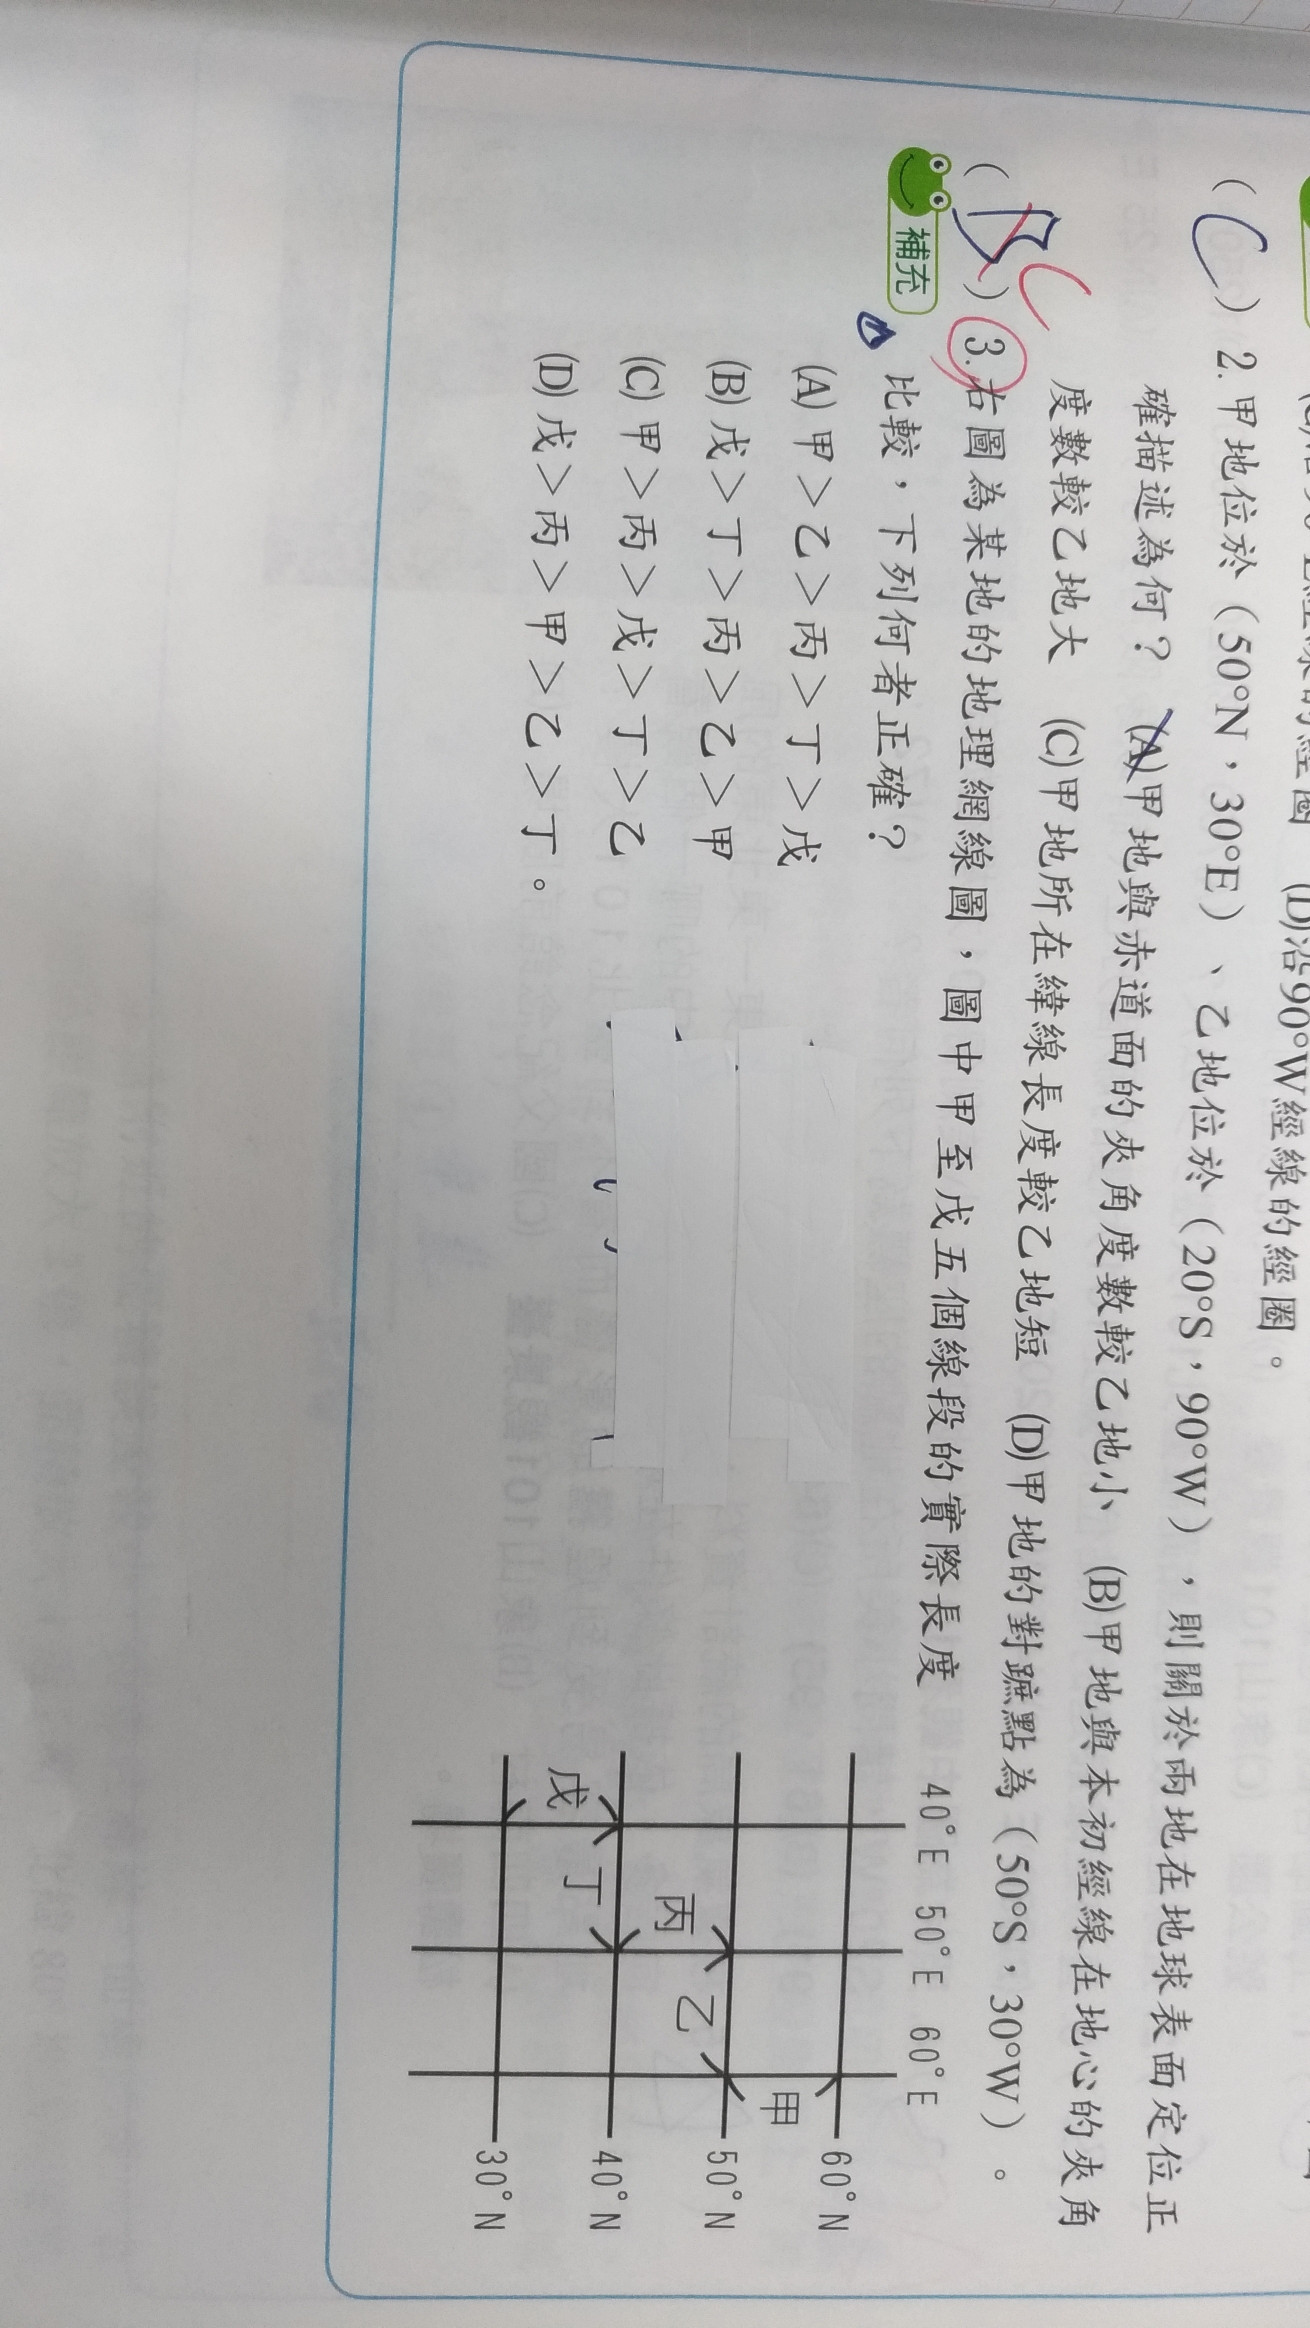 (D)沿90°W經線的經圈。
( C ) 2. 甲地位於（50°N，30°E）、乙地位於（20°S，90°W），則關於兩地在地球表面定位正
確描述為何？ (A)甲地與赤道面的夾角度數較乙地小 (B)甲地與本初經線在地心的夾角
度數較乙地大 (C)甲地所在緯線長度較乙地短 (D)甲地的對蹠點為（50°S，30°W）。
( B ) C 3. 右圖為某地的地理網線圖，圖中甲至戊五個線段的實際長度
補充
比較，下列何者正確？
(A) 甲＞乙＞丙＞丁＞戊
(B) 戊＞丁＞丙＞乙＞甲
(C) 甲＞丙＞戊＞丁＞乙
(D) 戊＞丙＞甲＞乙＞丁。
40°E 50°E 60°E
60°N
甲
50°N
丙 乙
40°N
戊 丁
30°N